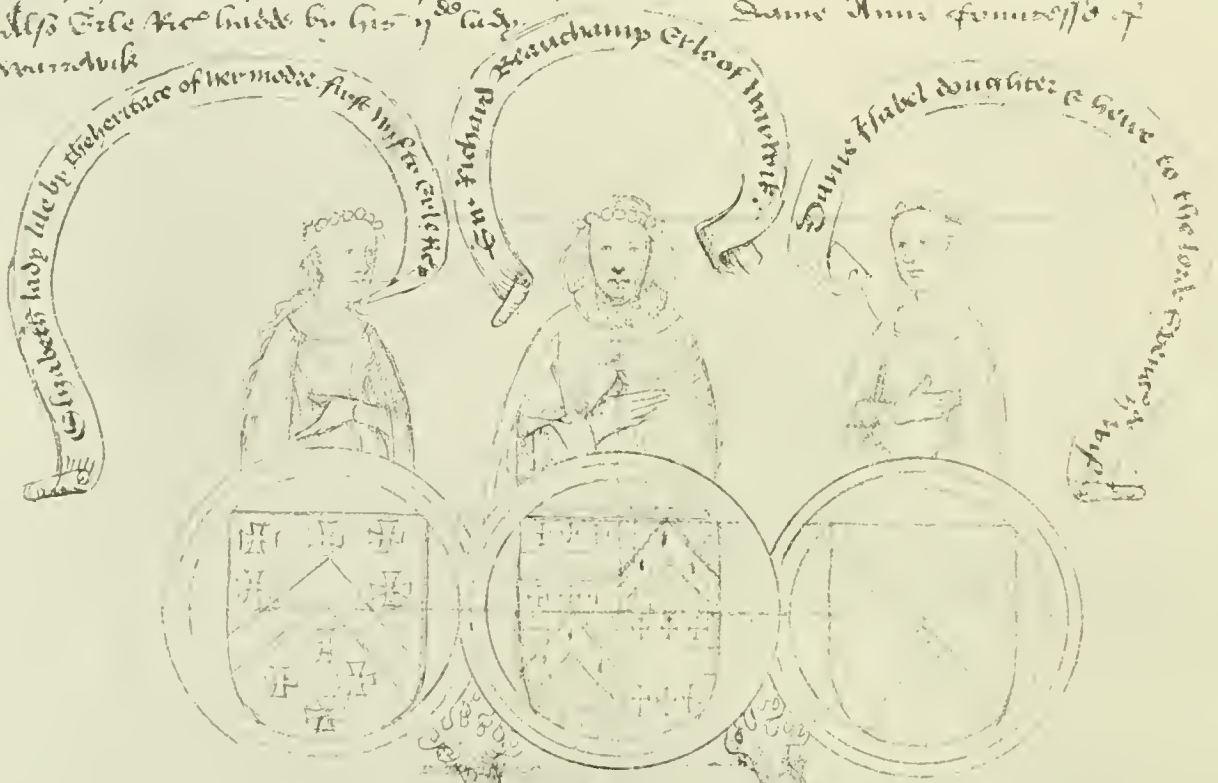 Also Erle Ric hadde by his ij de lady Dame Anne Countesse of
Warrewik
Elizabeth lady lile by theheritace of her modre first wyf to Erle Ric
Sir Richard Beauchamp Erle of Warrewik
Dame Isabel doughter & heire to the lord Spenser